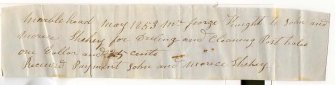 Marblehead May 1853 Mr George Knight to John and
Morace Shehey for Drilling and Cleaning Post holes
one Dollar and cents
Received Payment John and Morace Shehey